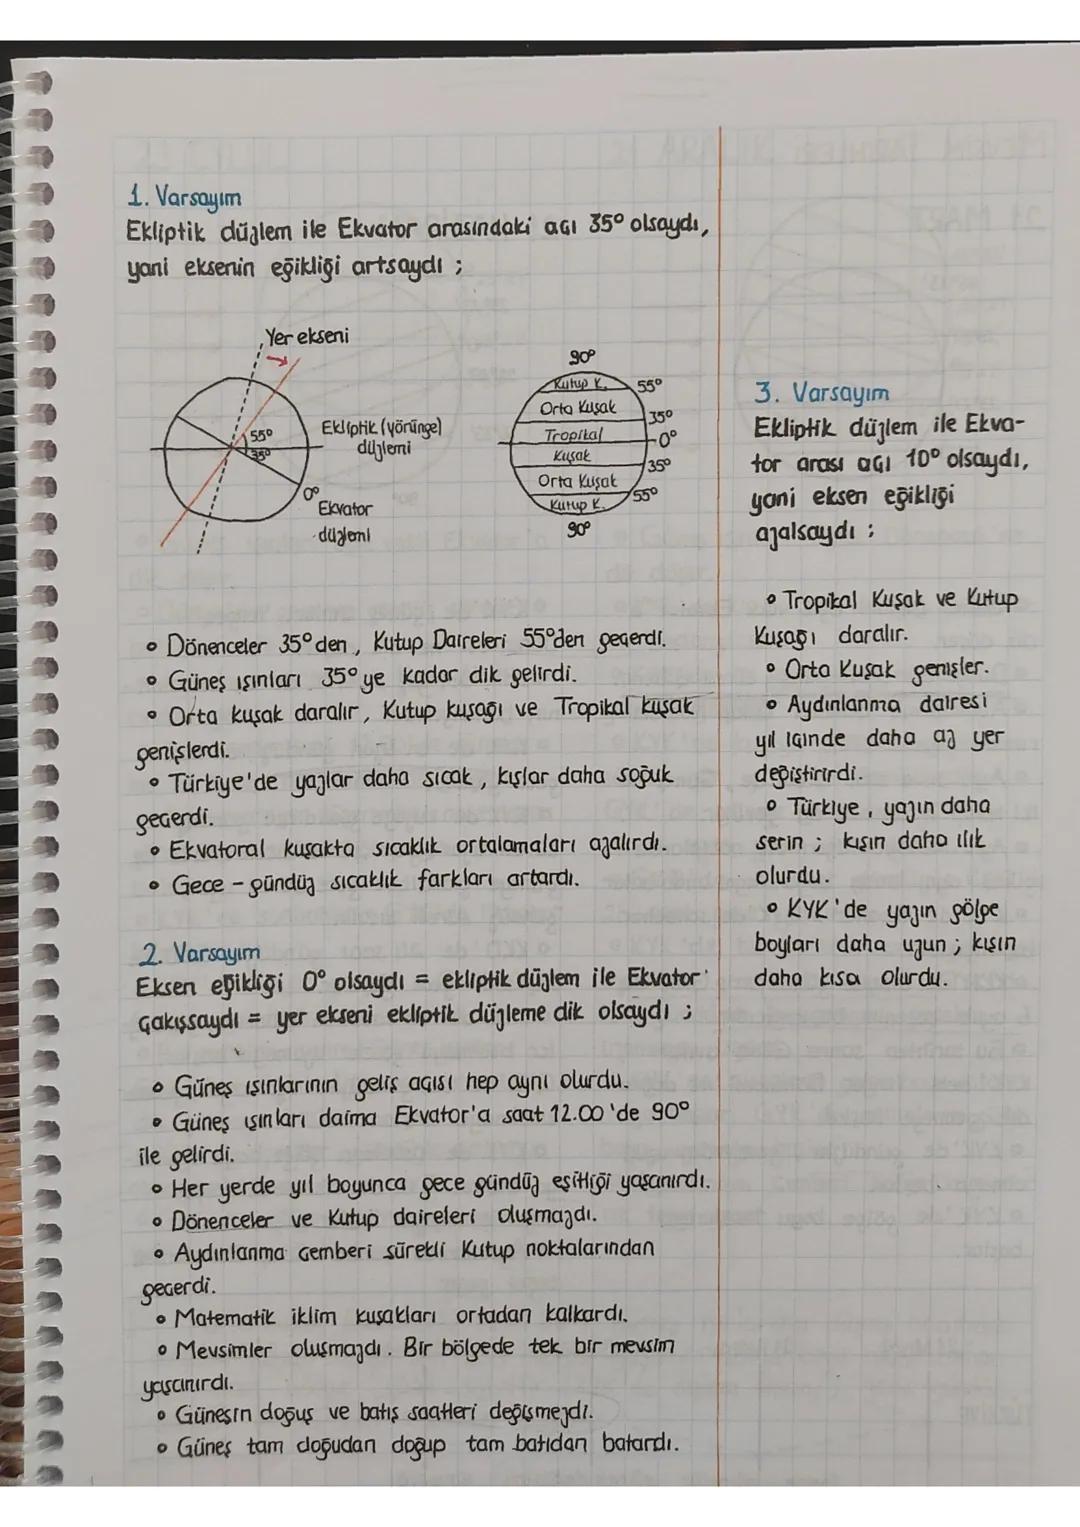 1. Varsayım
Ekliptik düzlem ile Ekvator arasındaki açı 35° olsaydı,
yani eksenin eğikliği artsaydı ;
Yer ekseni
55°
35°
Ekliptik (yörünge)
düzlemi
0°
Ekvator
düzlemi
90°
Kutup K.
55°
Orta Kuşak
35°
Tropikal
0°
Kuşak
35°
Orta Kuşak
55°
Kutup K.
90°
• Dönenceler 35°den, Kutup Daireleri 55°den geçerdi.
• Güneş ışınları 35° ye kadar dik gelirdi.
• Orta kuşak daralır, Kutup kuşağı ve Tropikal kuşak
genişlerdi.
• Türkiye'de yazlar daha sıcak, kışlar daha soğuk
geçerdi.
• Ekvatoral kuşakta sıcaklık ortalamaları azalırdı.
• Gece - gündüz sıcaklık farkları artardı.
2. Varsayım
Eksen eğikliği 0° olsaydı = ekliptik düzlem ile Ekvator
çakışsaydı = yer ekseni ekliptik düzleme dik olsaydı ;
• Güneş ışınlarının geliş açısı hep aynı olurdu.
• Güneş ışınları daima Ekvator'a saat 12.00'de 90°
ile gelirdi.
• Her yerde yıl boyunca gece gündüz eşitliği yaşanırdı.
• Dönenceler ve Kutup daireleri oluşmazdı.
• Aydınlanma çemberi sürekli Kutup noktalarından
geçerdi.
• Matematik iklim kuşakları ortadan kalkardı.
• Mevsimler oluşmazdı. Bir bölgede tek bir mevsim
yaşanırdı.
• Güneşin doğuş ve batış saatleri değişmezdi.
• Güneş tam doğudan doğup tam batıdan batardı.
3. Varsayım
Ekliptik düzlem ile Ekva-
tor arası açı 10° olsaydı,
yani eksen eğikliği
azalsaydı ;
• Tropikal Kuşak ve Kutup
Kuşağı daralır.
• Orta Kuşak genişler.
• Aydınlanma dairesi
yıl içinde daha az yer
değiştirirdi.
• Türkiye, yazın daha
serin ; kışın daha ılık
olurdu.
• KYK'de yazın gölge
boyları daha uzun ; kışın
daha kısa olurdu.